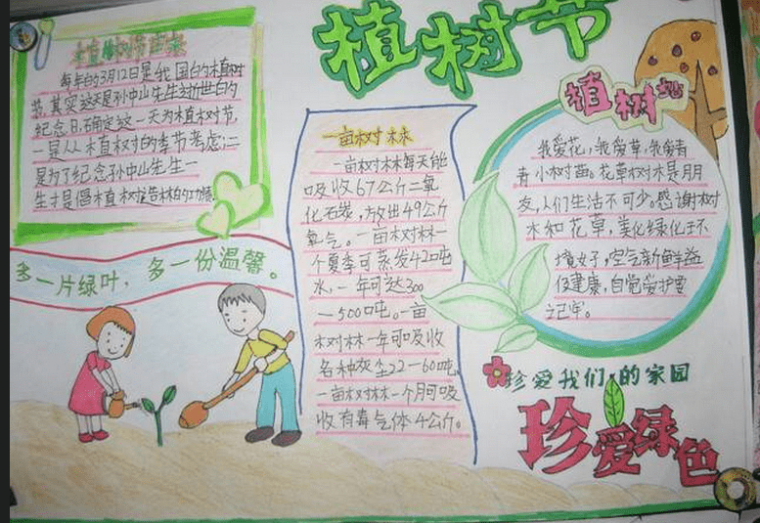 植树节
植树节由来
每年的3月12日是我国的植树
节,其实这天是孙中山先生逝世的
纪念日,确定这一天为植树节,
一是从植树的季节考虑;二
是为了纪念孙中山先生一
生提倡植树造林的功
多一片绿叶,多一份温馨。
一亩树林
一亩树林每天能
吸收67公斤二氧
化石炭,放出49公斤
氧气。一亩树林一
个夏季可蒸发42吨
水,一年可达300
—500吨。一亩
树林一年可吸收
各种灰尘22—60吨,
一亩树林一个月可吸
收有毒气体4公斤。
植树
我爱花,我爱草,我爱青
青小树苗。花草树木是朋
友,人们生活不可少。感谢树
木和花草,美化绿化环
境好,空气新鲜益
健康,自觉爱护要
记牢。
珍爱我们的家园
珍爱绿色